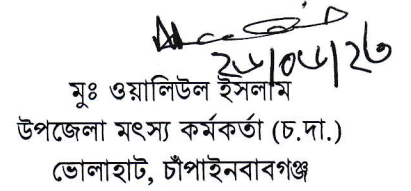 ২৮/০৮/২৩
মুঃ ওয়ালিউল ইসলাম
উপজেলা মৎস্য কর্মকর্তা (চ.দা.)
ভোলাহাট, চাঁপাইনবাবগঞ্জ